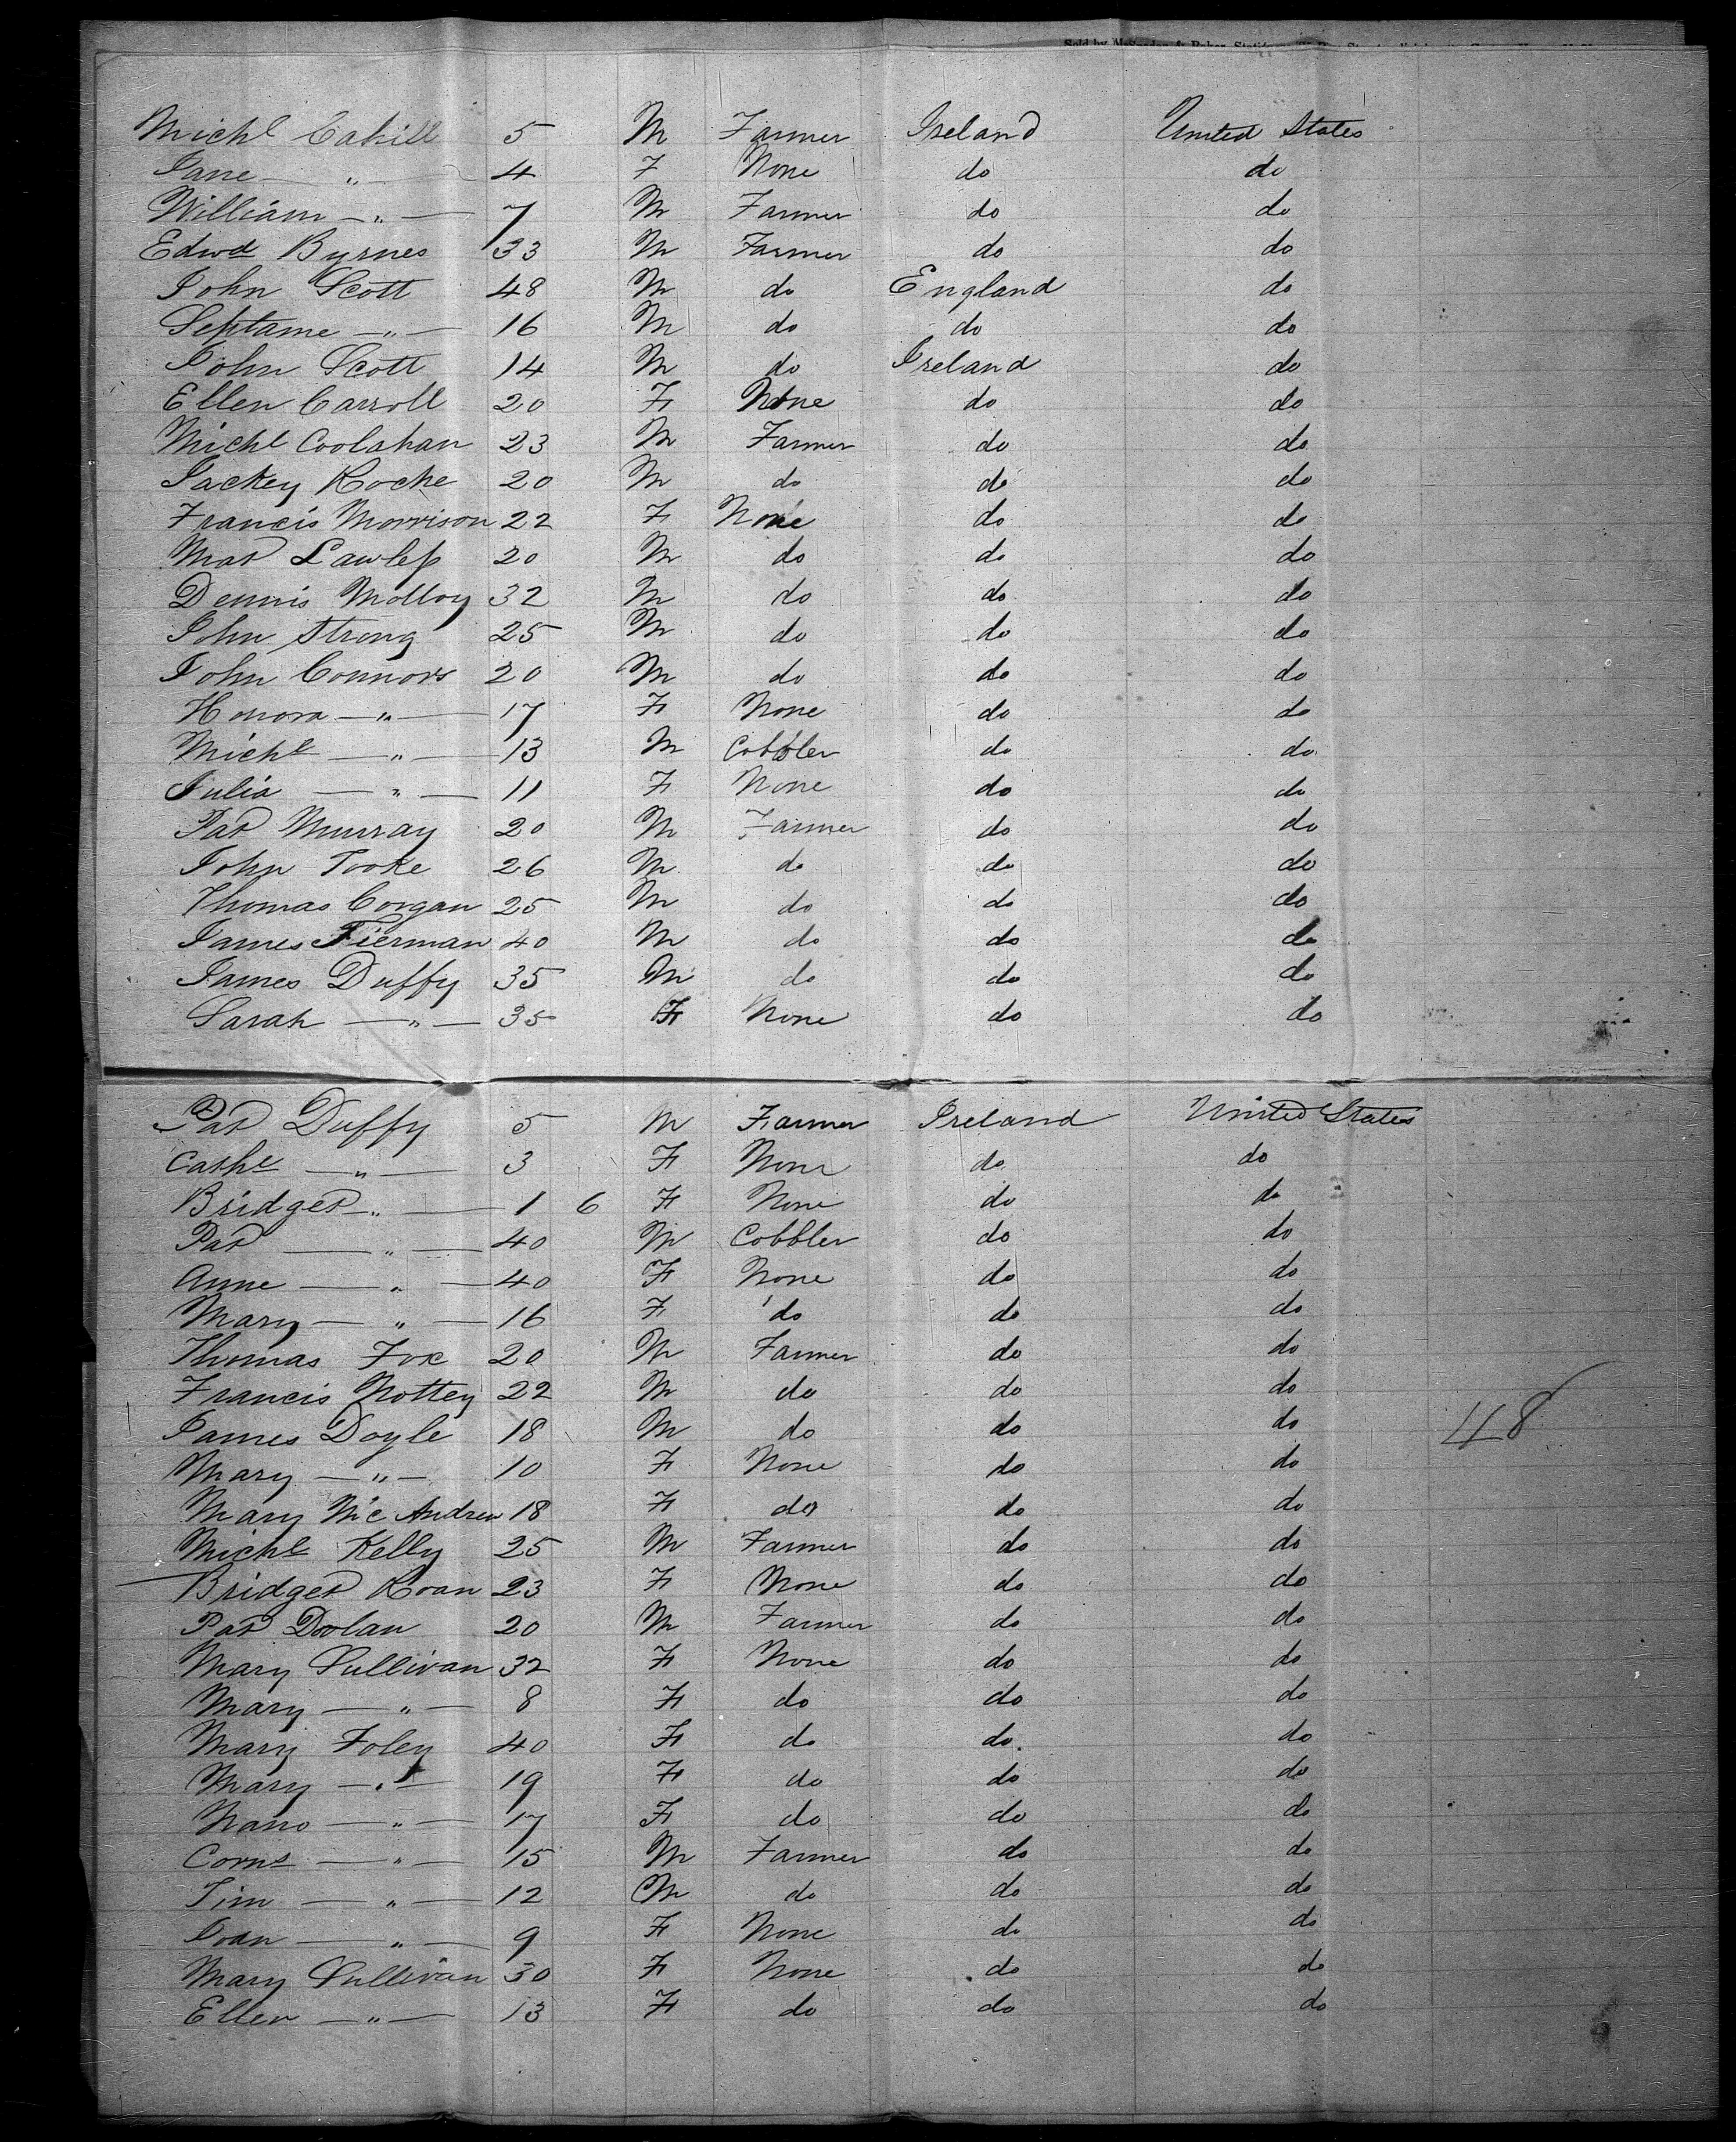 Michl Cahill 5 M Farmer Ireland United States
Jane — " — 4 F None do do
William — " — 7 M Farmer do do
Edwd Byrnes 33 M Farmer do do
John Scott 48 M do England do
Septame — " — 16 M do do do
John Scott 14 M do Ireland do
Ellen Carroll 20 F None do do
Michl Coolahan 23 M Farmer do do
Jackey Roche 20 M do do do
Francis Morrison 22 F None do do
Mat Lawless 20 M do do do
Dennis Molloy 32 M do do do
John Strong 25 M do do do
John Connors 20 M do do do
Honora — " — 17 F None do do
Michl — " — 13 M Cobbler do do
Julia — " — 11 F None do do
Pat Murray 20 M Farmer do do
John Tooke 26 M do do do
Thomas Corgan 25 M do do do
James Tierman 40 M do do do
James Duffy 35 M do do do
Sarah — " — 35 F None do do
Pat Duffy 5 M Farmer Ireland United States
Cathe — " — 3 F None do do
Bridget — " — 1 6 F None do do
Pat — " — 40 M Cobbler do do
Anne — " — 40 F None do do
Mary — " — 16 F do do do
Thomas Fox 20 M Farmer do do
Francis Nottey 22 M do do do
James Doyle 18 M do do do 48
Mary — " — 10 F None do do
Mary McAndrew 18 F do do do
Michl Kelly 25 M Farmer do do
Bridget Roan 23 F None do do
Pat Doolan 20 M Farmer do do
Mary Sullivan 32 F None do do
Mary — " — 8 F do do do
Mary Foley 40 F do do do
Mary — " — 19 F do do do
Nano — " — 17 F do do do
Corns — " — 15 M Farmer do do
Tim — " — 12 M do do do
Joan — " — 9 F None do do
Mary Sullivan 30 F None do do
Ellen — " — 13 F do do do